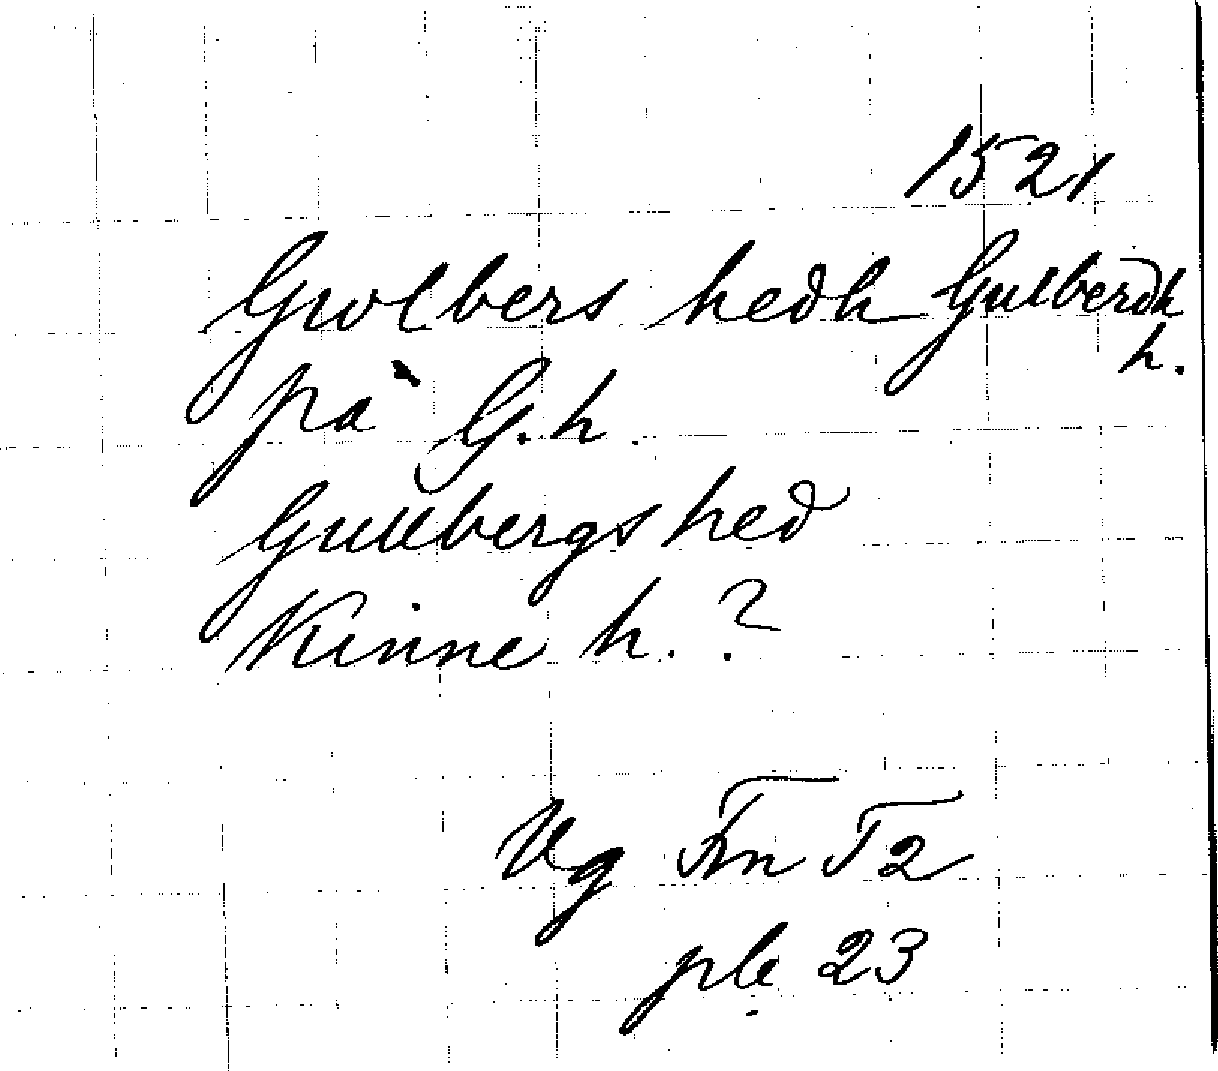 1521
Gwlbers hedh Gulberdh
h.
på G.h.
Gullbergs hed
Kinne h. ?
Vg Fm T2
pk 23